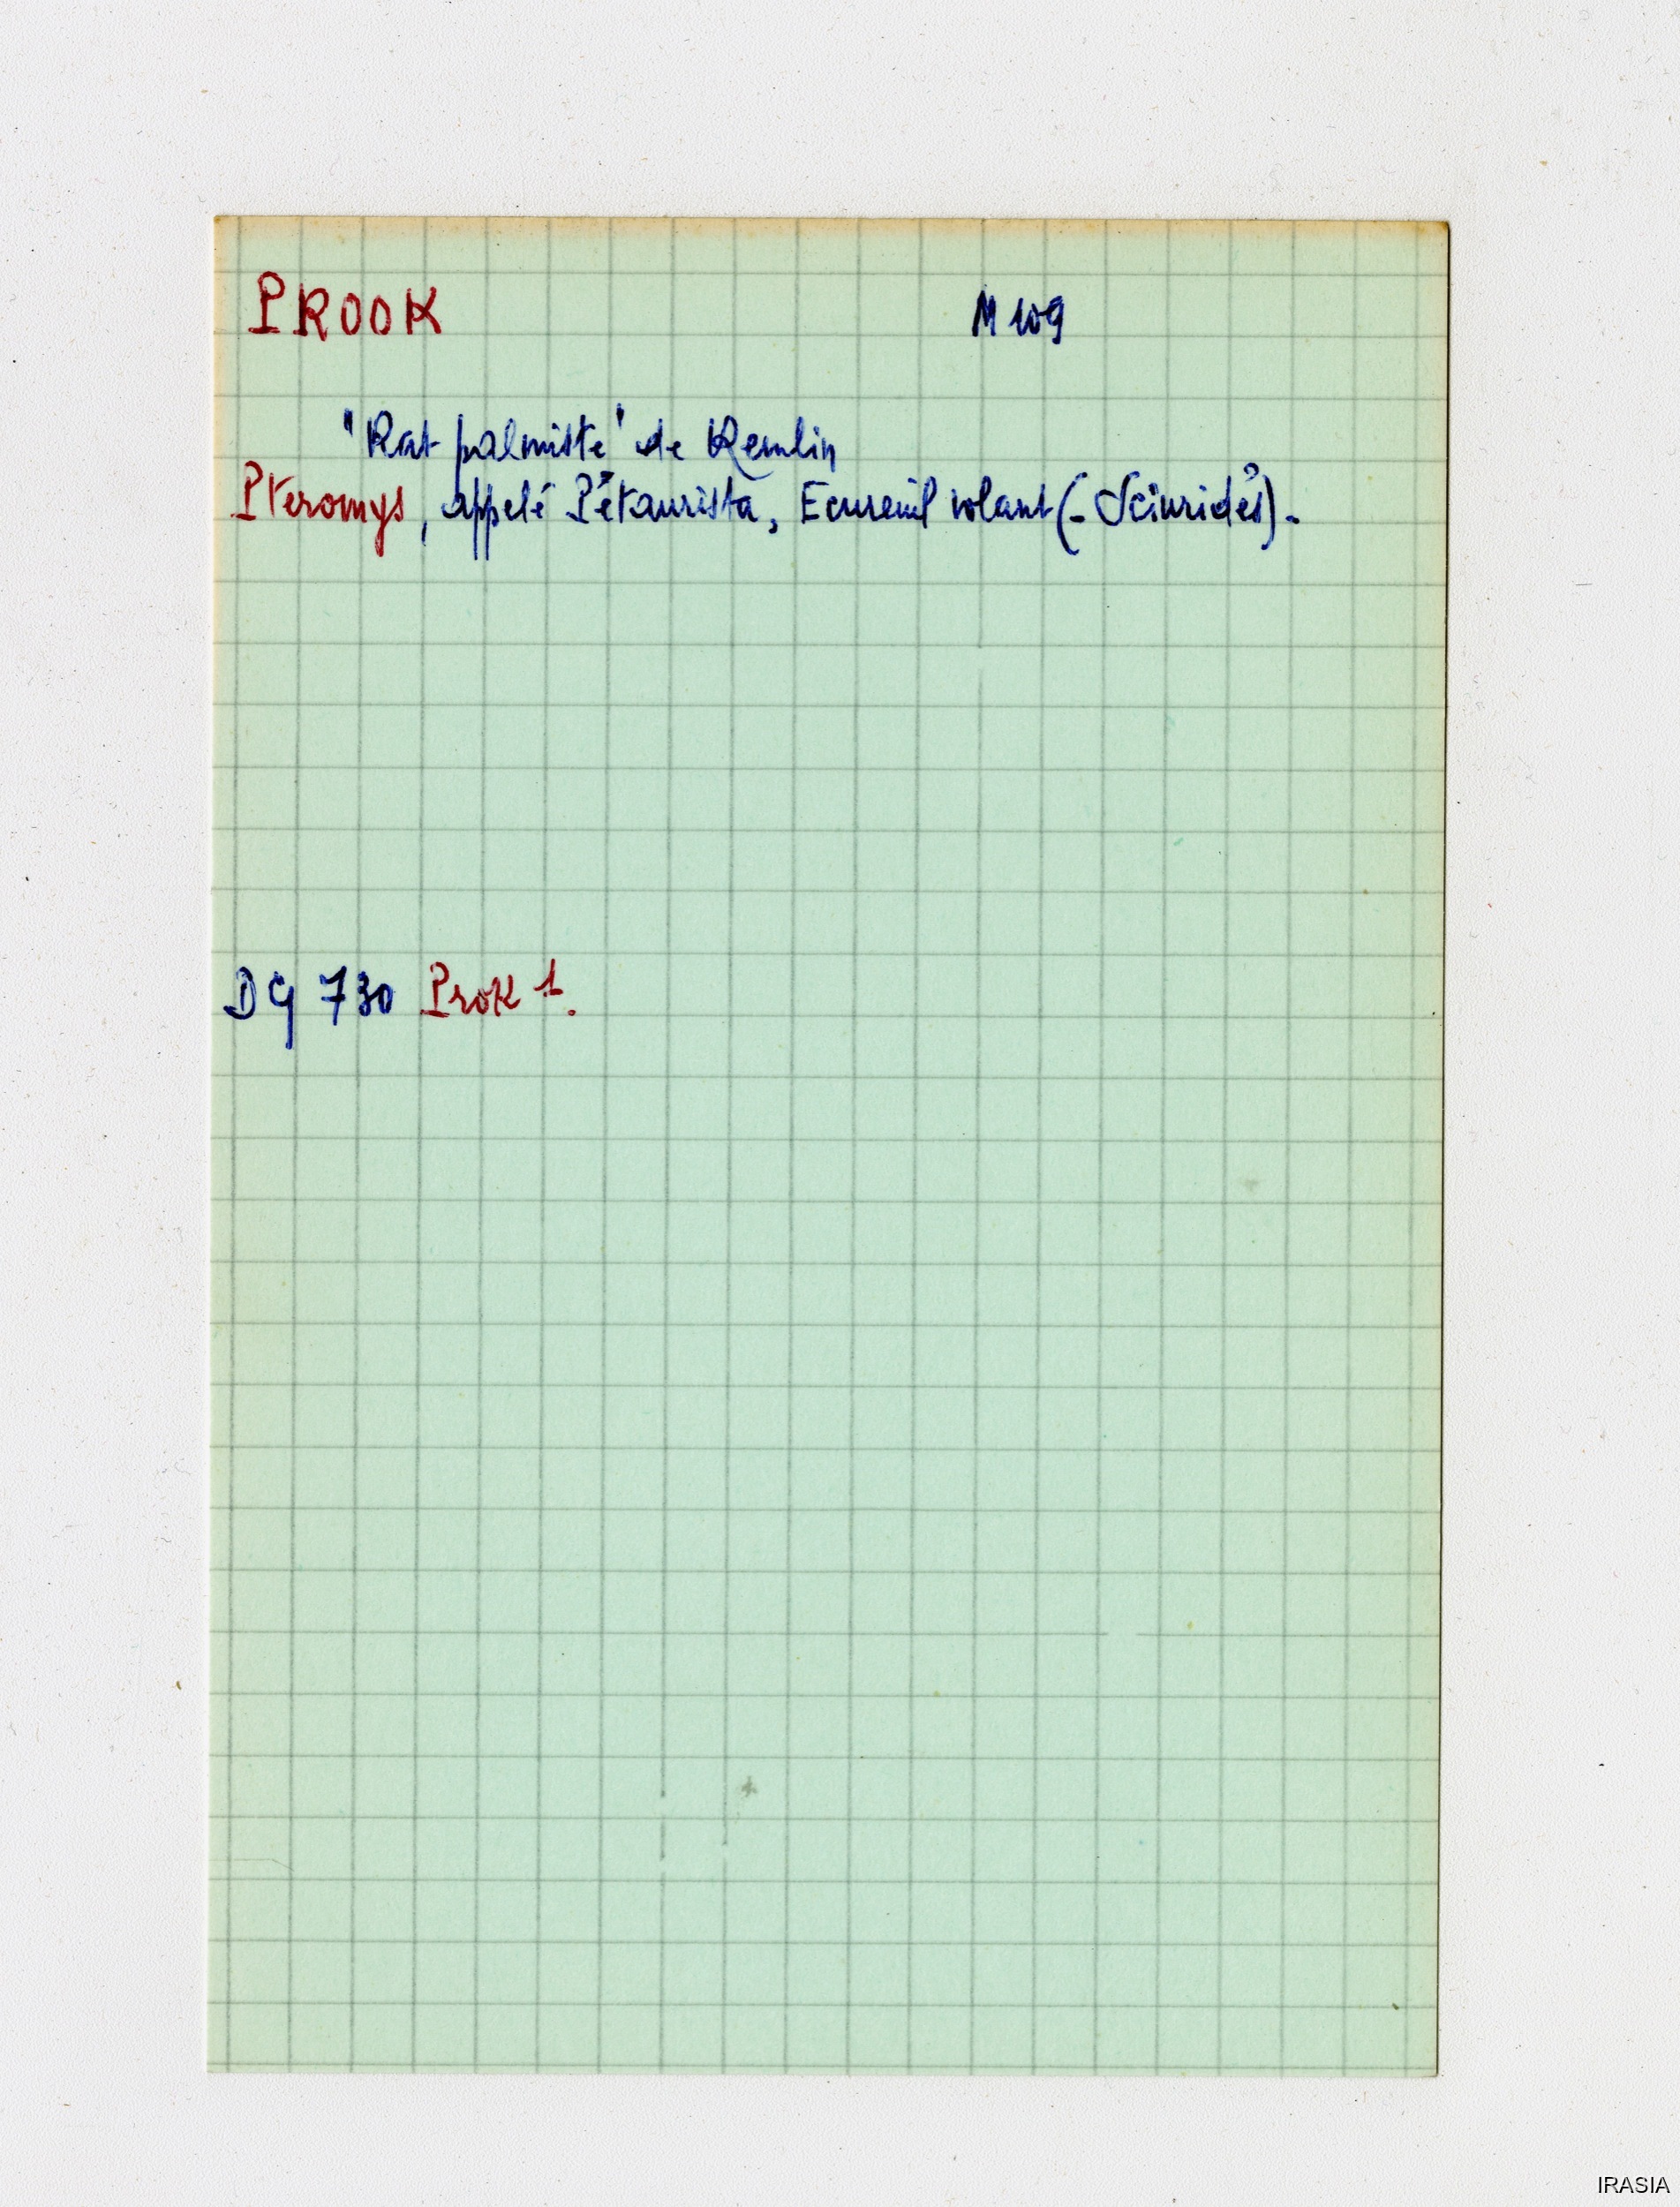 PROOK M 109
"Rat palmiste" de Kemlin
Pteromys, appelé Pétaurista, Ecureuil volant (- Sciuridés).
DG 730 Prok 1.
IRASIA